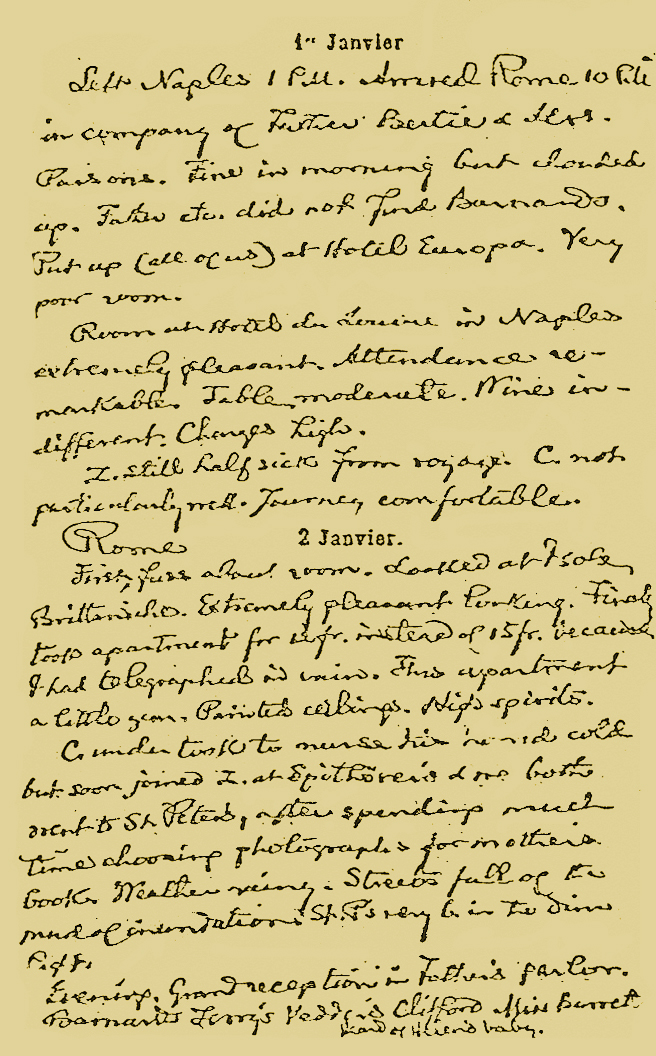 1er Janvier
Left Naples 1 P.M. Arrived Rome 10 P.M
in company of Father Bertie & Mrs.
Parsons. Fine in morning but clouded
up. Father etc. did not find Barnards.
Put up (all of us) at Hotel Europa. Very
poor room.
Room at Hotel du Louvre in Naples
extremely pleasant. Attendance re-
markable. Table moderate. Wine in-
different. Charges high.
Z. still half sick from voyage. C. not
particularly well. Journey comfortable.
Rome 2 Janvier.
First, fuss about room. Looked at Isole
Brittaniche. Extremely pleasant looking. Finally
took apartment for 12 fr. instead of 15 fr. because
I had telegraphed in vain. This apartment
a little gem. Painted ceilings. High spirits.
C. undertook to nurse his cold
but soon joined Z. at Spithöver's & we both
went to St. Peter's, after spending much
time choosing photographs for mother's
book. Weather rainy. Streets full of the
mud of inundation. St. P's very b. in the dim
light.
Evening. Grand reception in Father's parlor.
Barnards Terrys Vedders Clifford Miss Burret
Heard of Helen's baby.